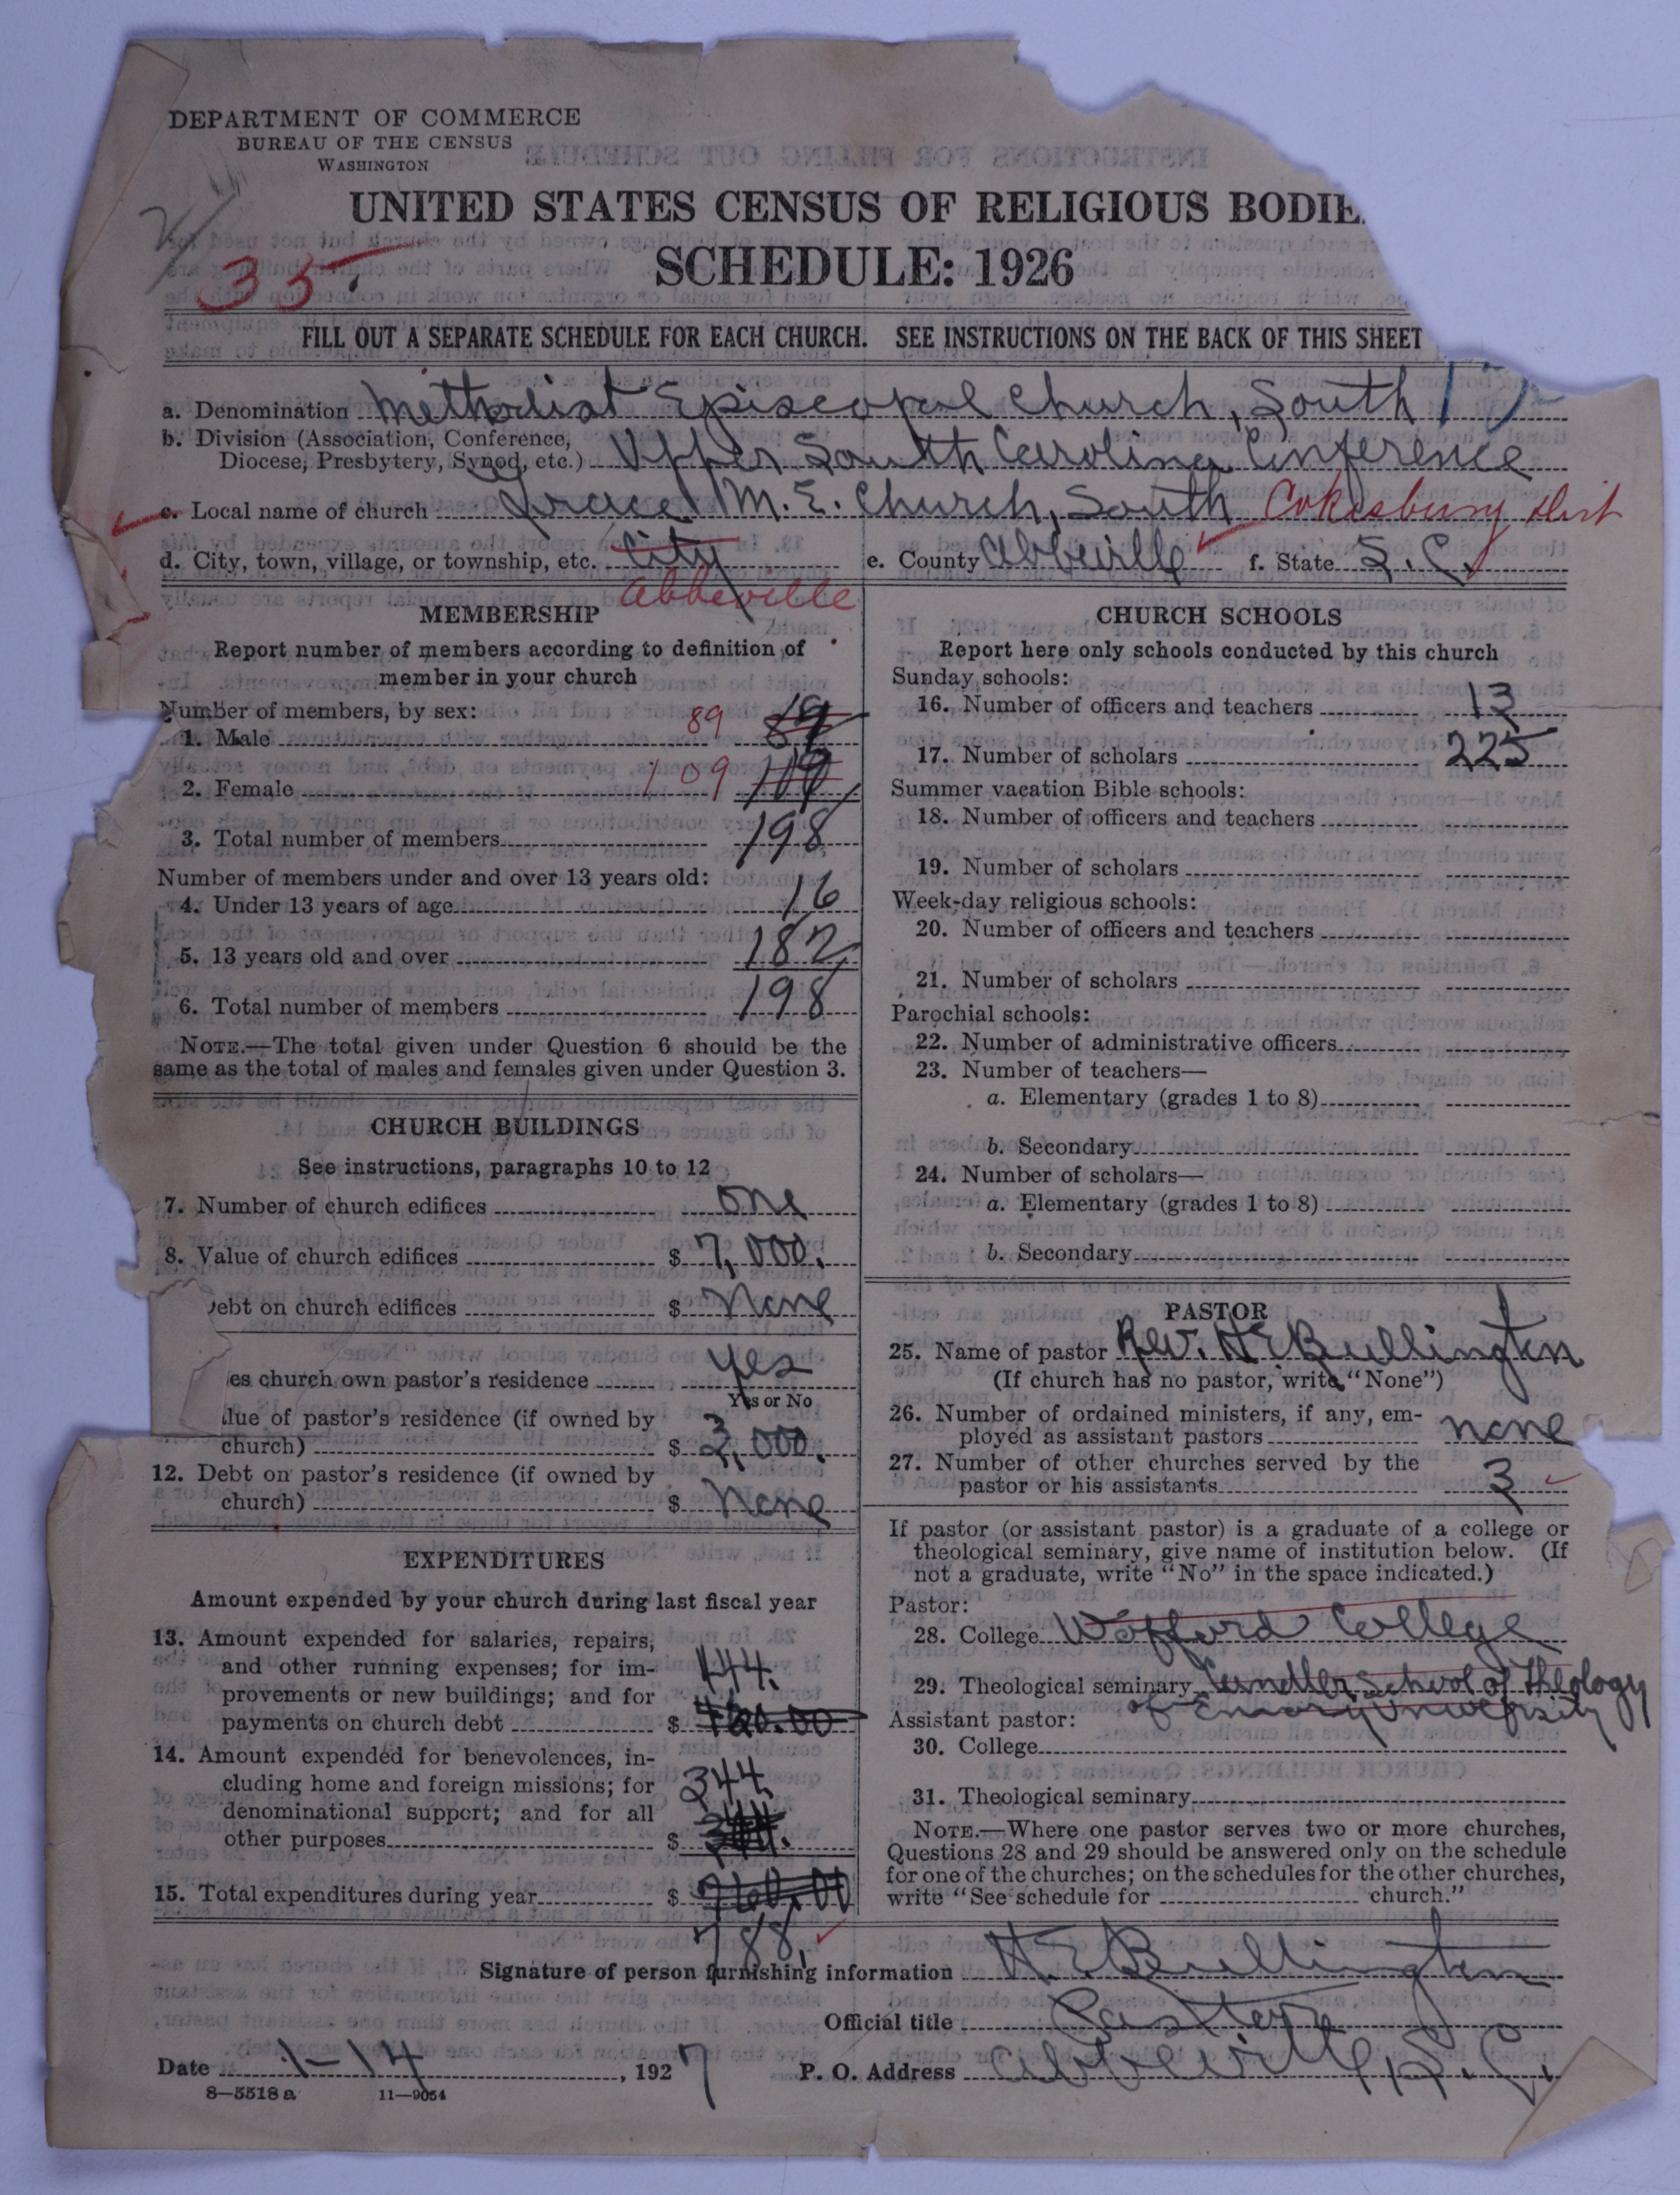 DEPARTMENT OF COMMERCE
BUREAU OF THE CENSUS
WASHINGTON
UNITED STATES CENSUS OF RELIGIOUS BODIE
SCHEDULE: 1926
335
FILL OUT A SEPARATE SCHEDULE FOR EACH CHURCH. SEE INSTRUCTIONS ON THE BACK OF THIS SHEET
a. Denomination Methodist Episcopal Church, South
b. Division (Association, Conference,
Diocese, Presbytery, Synod, etc.) Upper South Carolina Conference
c. Local name of church Grace M. E. Church, South Cokesbury Dist
d. City, town, village, or township, etc. City e. County Abbeville f. State S. C.
Abbeville
MEMBERSHIP
Report number of members according to definition of
member in your church
Number of members, by sex:
1. Male 89 89
2. Female 109 109
3. Total number of members 198
Number of members under and over 13 years old:
4. Under 13 years of age 16
5. 13 years old and over 182
6. Total number of members 198
NOTE.—The total given under Question 6 should be the
same as the total of males and females given under Question 3.
CHURCH BUILDINGS
See instructions, paragraphs 10 to 12
7. Number of church edifices one
8. Value of church edifices $ 7,000.
ebt on church edifices $ None
es church own pastor's residence yes
Yes or No
lue of pastor's residence (if owned by
church) $ 3,000.
12. Debt on pastor's residence (if owned by
church) $ None
EXPENDITURES
Amount expended by your church during last fiscal year
13. Amount expended for salaries, repairs,
and other running expenses; for im-
provements or new buildings; and for
payments on church debt $ 444.
14. Amount expended for benevolences, in-
cluding home and foreign missions; for
denominational support; and for all
other purposes $ 344.
344.
15. Total expenditures during year $ 760.00
788.
CHURCH SCHOOLS
Report here only schools conducted by this church
Sunday schools:
16. Number of officers and teachers 13
17. Number of scholars 225
Summer vacation Bible schools:
18. Number of officers and teachers
19. Number of scholars
Week-day religious schools:
20. Number of officers and teachers
21. Number of scholars
Parochial schools:
22. Number of administrative officers
23. Number of teachers—
a. Elementary (grades 1 to 8)
b. Secondary
24. Number of scholars—
a. Elementary (grades 1 to 8)
b. Secondary
PASTOR
25. Name of pastor Rev. H E. Bullington
(If church has no pastor, write "None")
26. Number of ordained ministers, if any, em-
ployed as assistant pastors none
27. Number of other churches served by the
pastor or his assistants 3
If pastor (or assistant pastor) is a graduate of a college or
theological seminary, give name of institution below. (If
not a graduate, write "No" in the space indicated.)
Pastor:
28. College Wofford College
29. Theological seminary Candler School of Theology
of Emory University
Assistant pastor:
30. College
31. Theological seminary
NOTE.—Where one pastor serves two or more churches,
Questions 28 and 29 should be answered only on the schedule
for one of the churches; on the schedules for the other churches,
write "See schedule for church."
Signature of person furnishing information H. E. Bullington
Official title Pastor
Date 1-14, 1927 P. O. Address Abbeville, S. C.
8—5518 a 11—9054